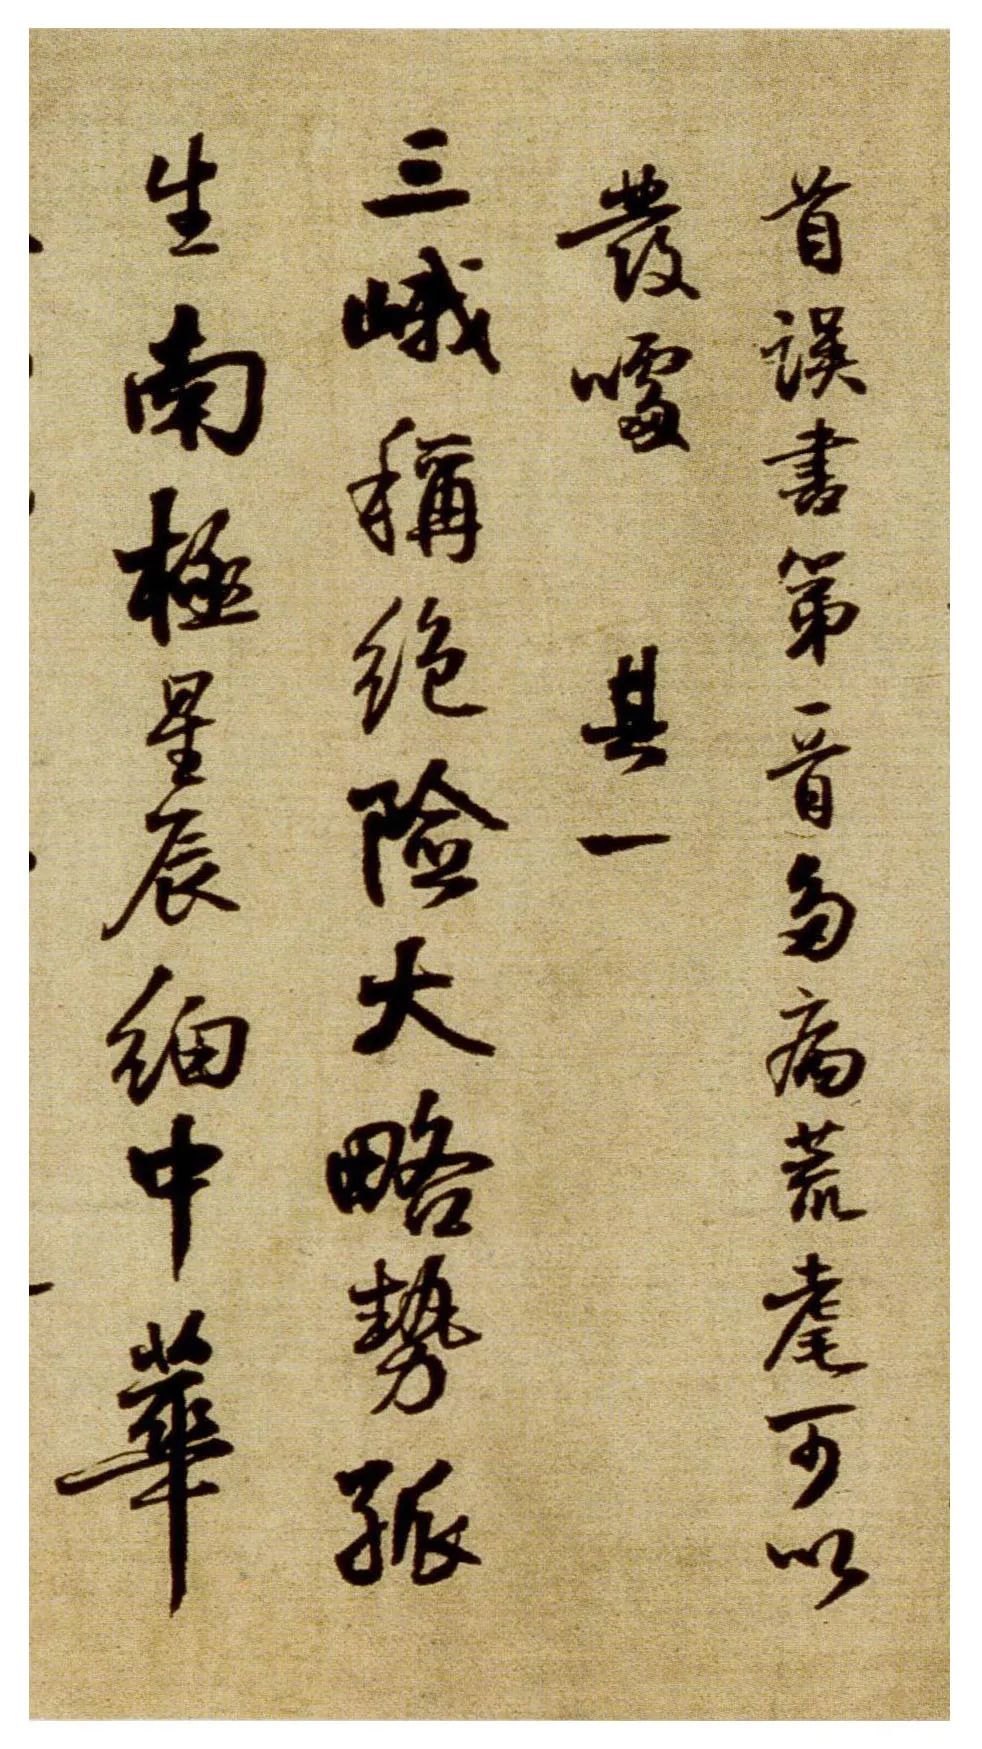 首誤書第一首多病荒耄可以
發噱 其一
三峨稱絕險大略勢孤
生南極星辰細中華